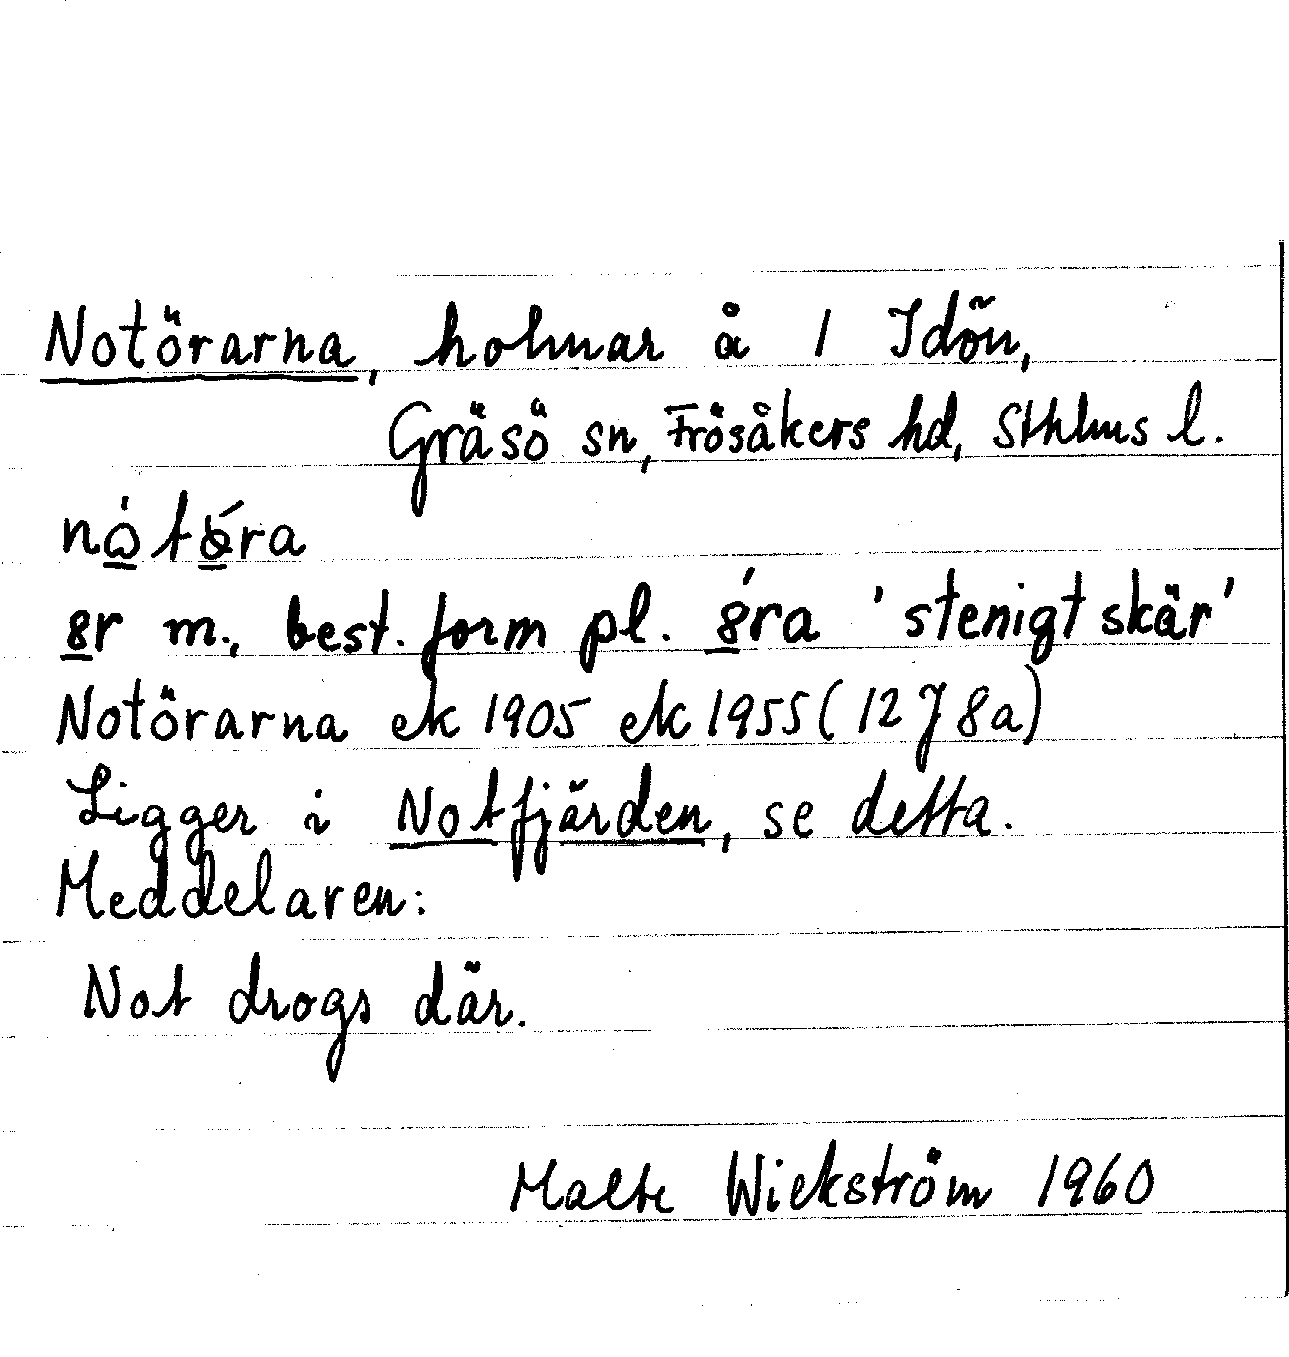 Notörarna, holmar å 1 Idön,
Gräsö sn, Frösåkers hd, Sthlms l.
best. form pl. 'stenigt skär'
Notörarna ek 1905 ek 1955 (12 J 8a)
Ligger i Notfjärden, se detta.
Meddelaren:
Not drogs där.
Malte Wickström 1960